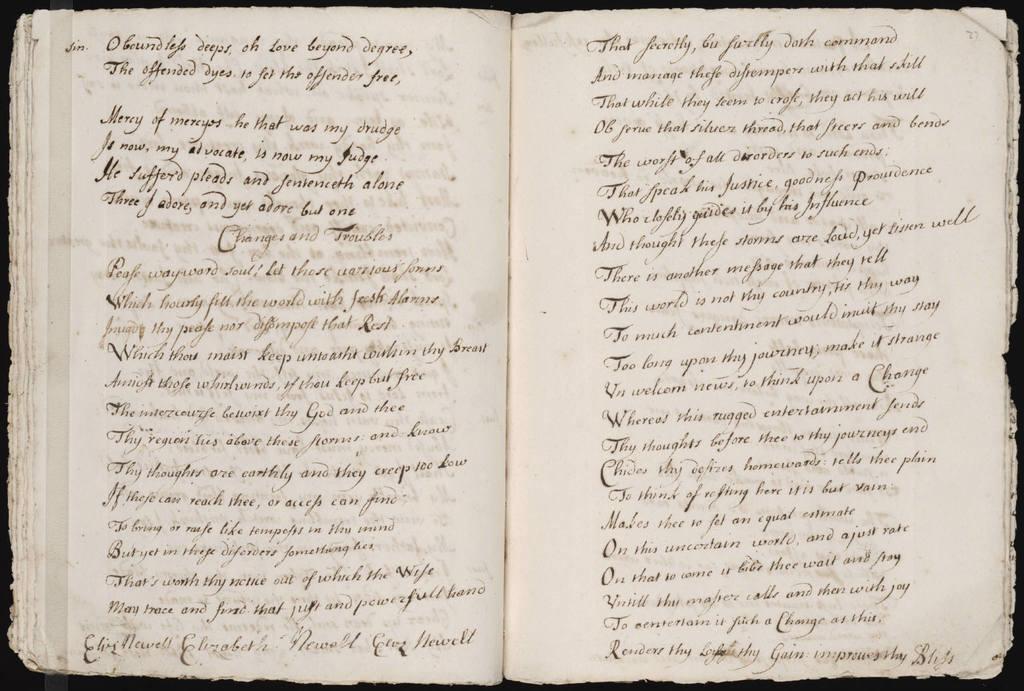 sin. O boundless deeps, oh Love beyond degree,
The offended dyes, to set the offender free,
Mercy of mercyes he that was my drudge
Is now, my advocate, is now my Judge
He sufferd pleads and sentenceth alone
Three I adore, and yet adore but one
Changes and Troubles
Pease wayward soul! Let those various storms
Which hourly fill the world with fresh Alarms
thy pease nor discompose that Rest
Which thou maist keep untoucht within thy Breast
Amidst those whirlwinds, if thou keep but free
The intercourse betwixt thy God and thee
Thy region lies above these storms: and know
Thy thoughts are earthly and they creep too Low
If these can reach thee, or access can find
To bring or raise like tempests in thy mind
But yet in these disorders something lies
That's worth thy notice out of which the Wise
May trace and find that just and powerfull hand
Eliz Newell Elizabeth Newell Eliz Newell
27
That secretly, but surelly doth command
And manage these distempers with that skill
That while they seem to crose, they act his will
Observe that silver thread, that steers and bends
The worst of all disorders to such ends:
That speak his Justice, goodness Providence
Who closely guides it by his Influence
And thought these storms are loud, yet listen well
There is another message that they tell
This world is not thy country, tis thy way
To much contentment would invit thy stay
Too long upon thy journey; make it strange
Un welcom news, to think upon a Change
Whereas this rugged entertainment sends
Thy thoughts before thee to thy journeys end
Chides thy desires homewards: tells thee plain
To think of resting here it is but vain:
Makes thee to set an equal estimate
On this uncertain world, and a just rate
On that to come it bids thee wait and stay
Untill thy master calls and then with joy
To entertain it such a Change as this,
Renders thy Loss thy Gain: improves thy Bliss